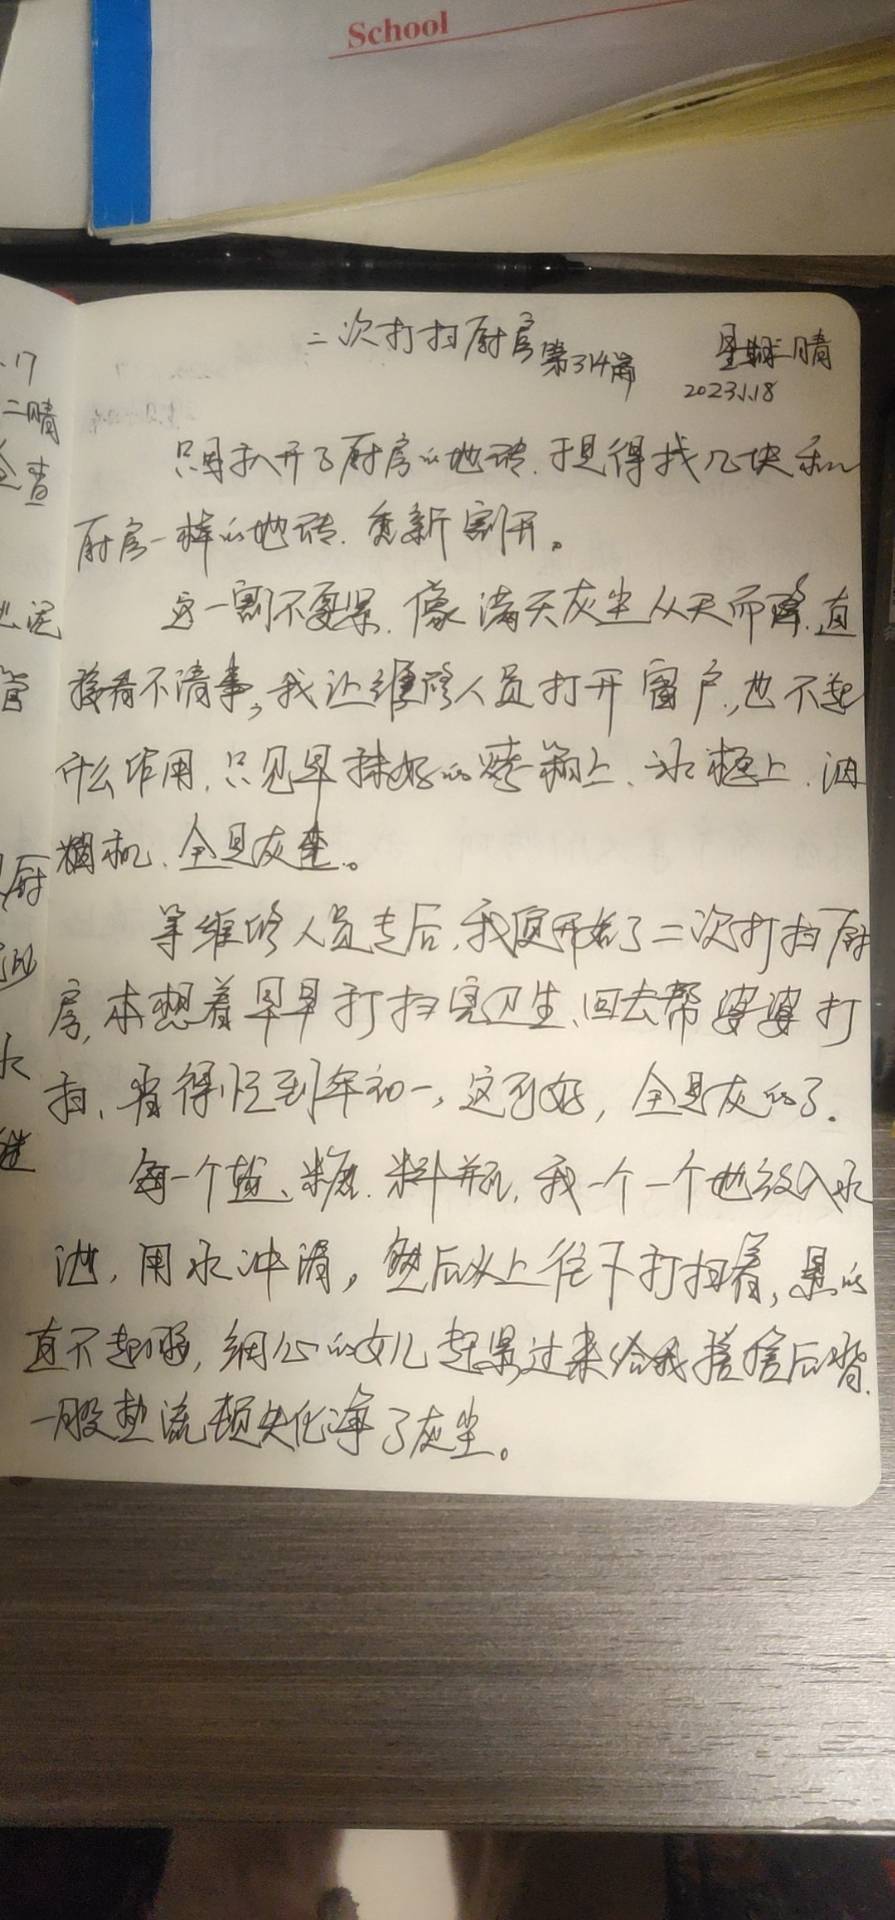 School
二次打扫厨房 第314篇 星期三 晴
2023.1.18
只因扒开了厨房的地砖.于是得找几块和
厨房一样的地砖.重新割开。
这一割不要紧.像满天灰尘从天而降.直
接看不清事,我让维修人员打开窗户.,也不起
什么作用.只见早抹好的烤箱上、冰柜上.油
烟机、全是灰尘。
等维修人员走后,我便开始了二次打扫厨
房,本想着早早打扫完卫生、回去帮婆婆打
扫、省得忙到年初一,这可好,全是灰的了.
每一个盐、糖.料瓶,我一个一个地放入水
池,用水冲清,然后从上往下打扫着,累的
直不起腰,细心的女儿赶紧过来给我搓搓后背.
一股热流顿失化净了灰尘。
17
二晴
查
泥
管
厨
水